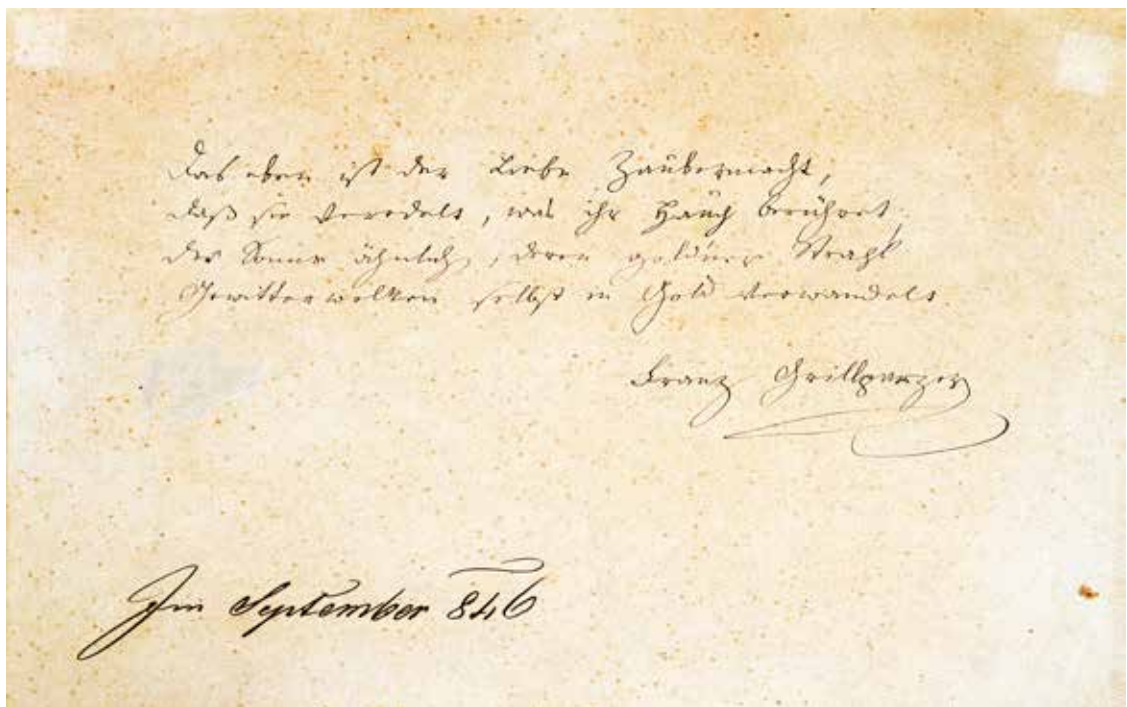 Das eben ist der Liebe Zaubermacht,
daß sie veredelt, was ihr Hauch berührt,
der Sonne ähnlich, deren goldner Strahl
Gewitterwolken selbst in Gold verwandelt.
Franz Grillparzer
Im September 846